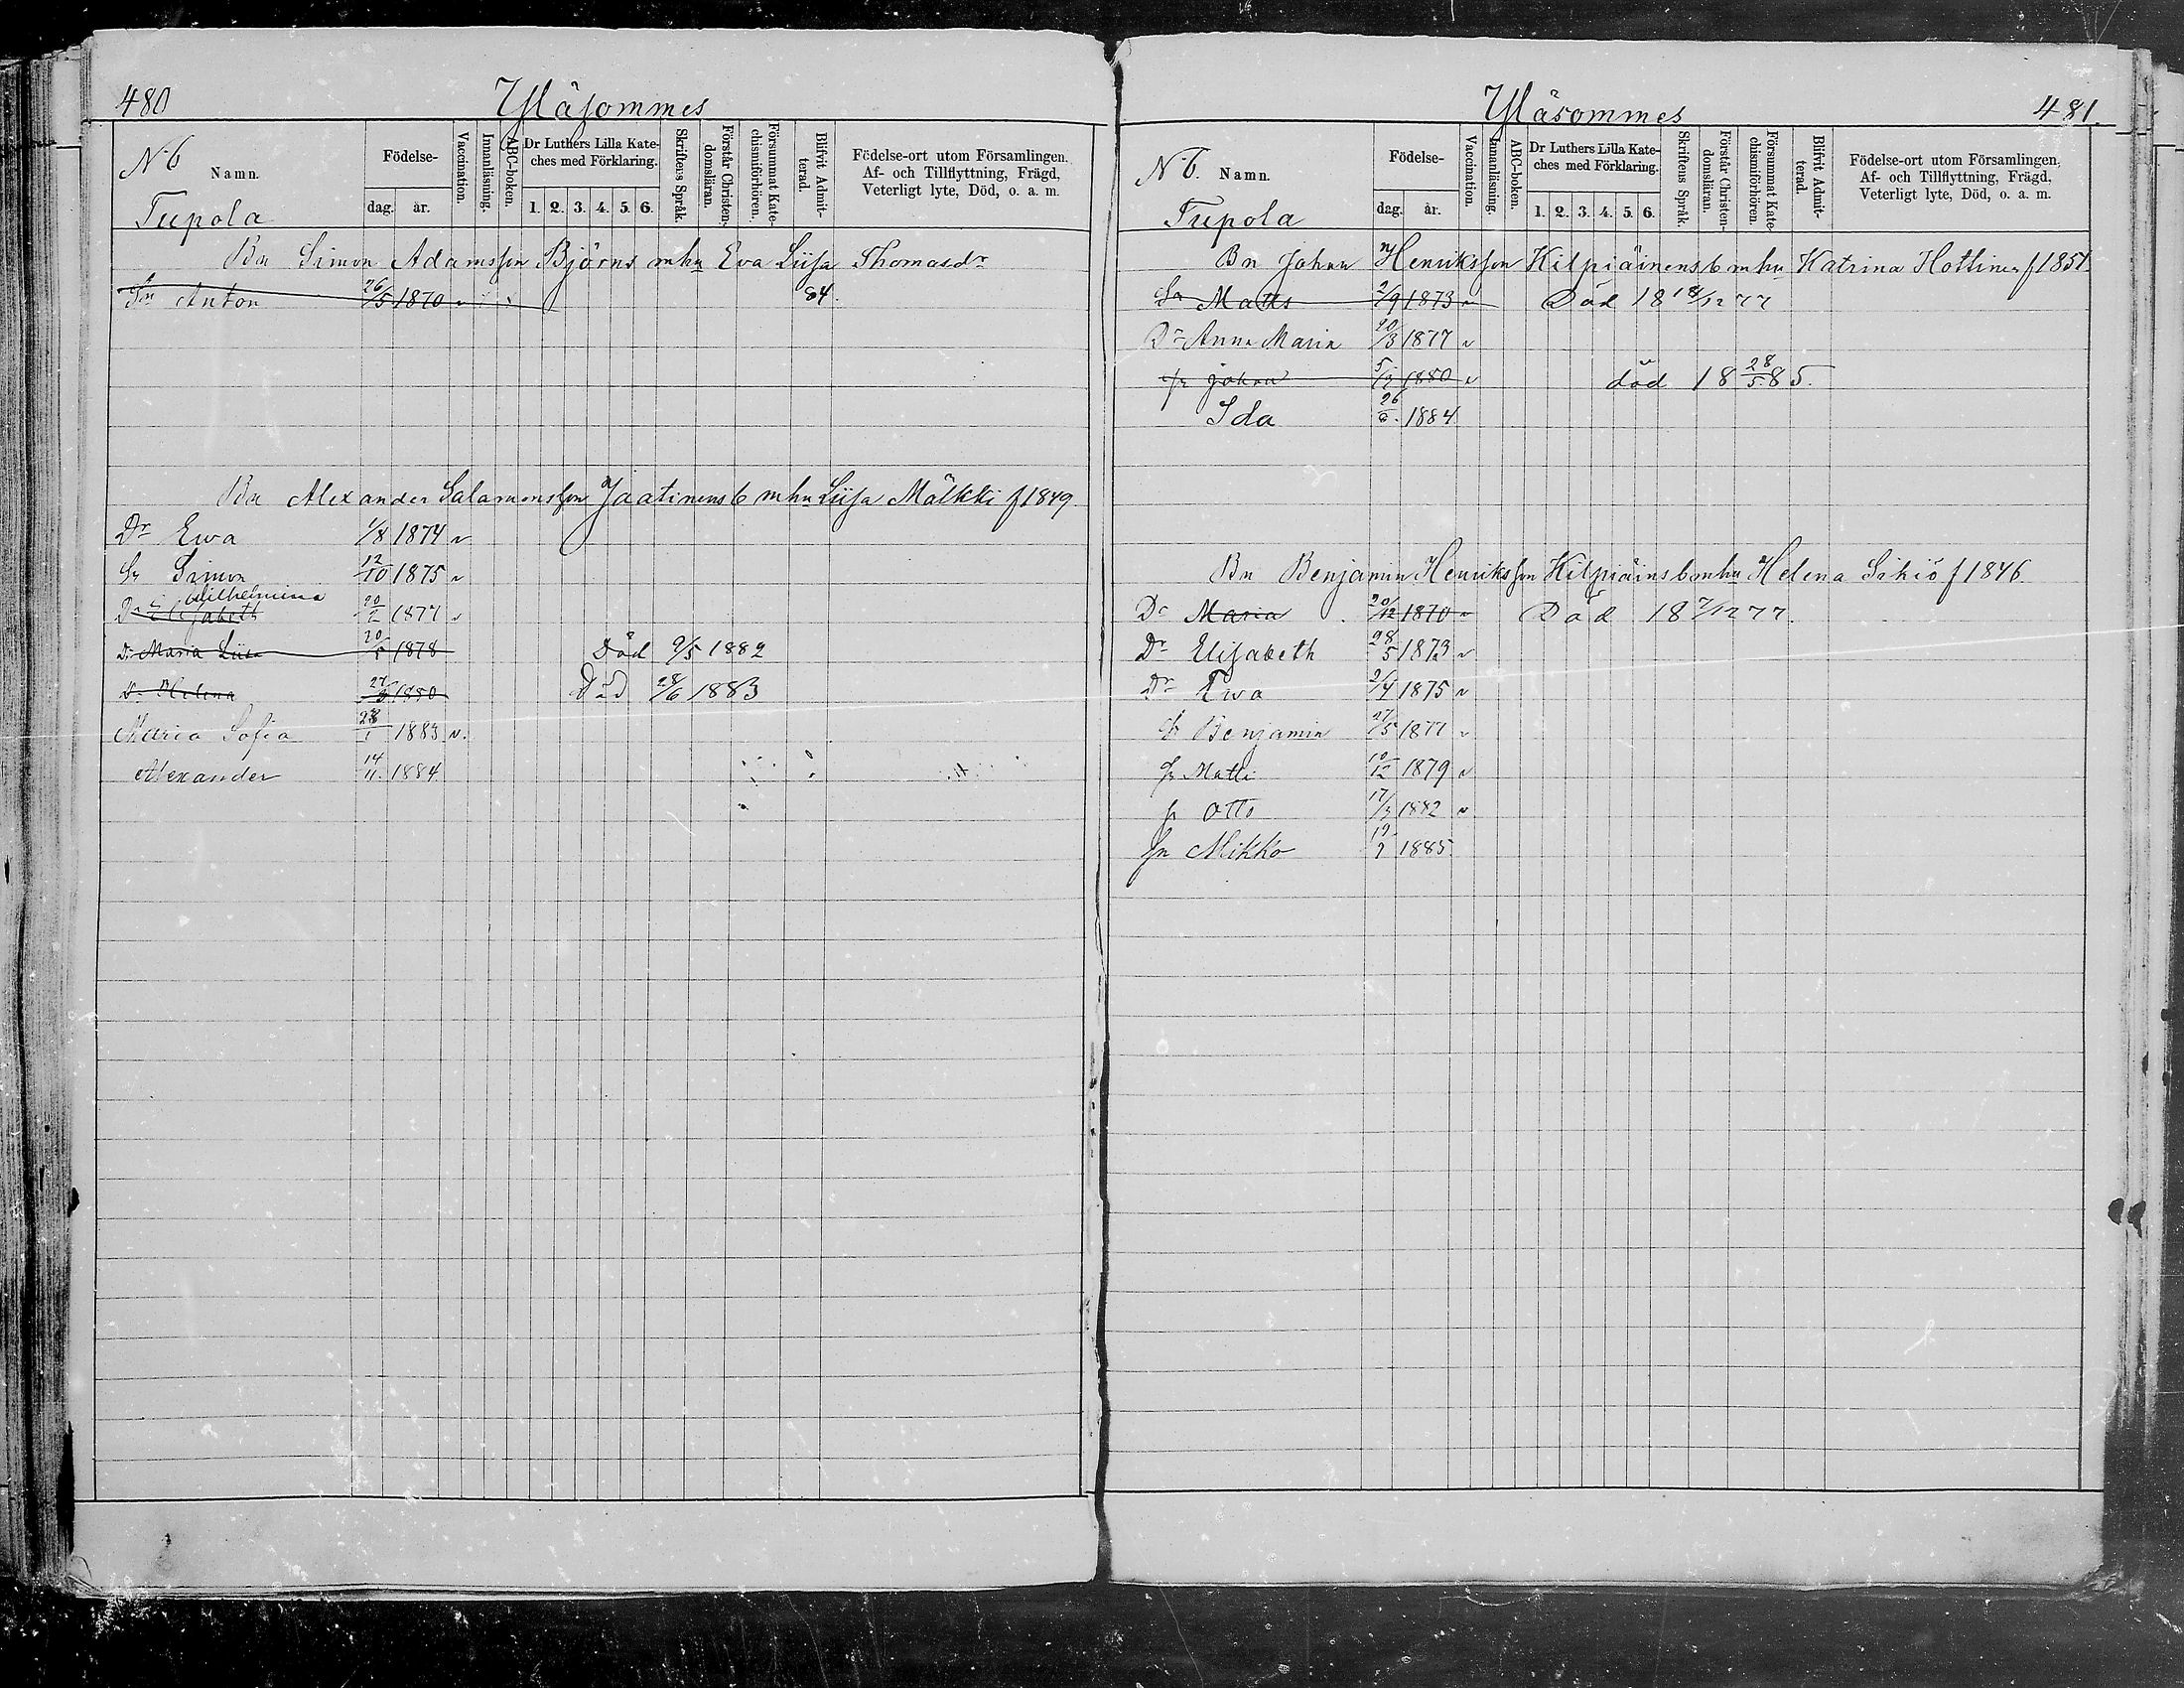 480
Yläsommes
N 6
Namn.
Tupola
Födelse-
dag.
år.
Vaccination.
Innanläsning.
ABC-boken.
Dr Luthers Lilla Kate-
ches med Förklaring.
1. 2. 3. 4. 5. 6.
Skriftens Språk.
Förstår Christen-
domsläran.
Försummat Kate-
chismiförhören.
Blifvit Admit-
terad.
Födelse-ort utom Församlingen.
Af- och Tillflyttning, Frägd,
Veterligt lyte, Död, o. a. m.
Bn Simon Adamsson Björns mhu Eva Liisa Thomasdr
Sn Anton 26/5 1870 v 84.
Bn Alexander Salamonsson Jaatinens b mhu Liisa Mälkki f 1849.
Dr Ewa 1/8 1874 v
Sn Simon 12/10 1875 v
Wilhelmina
Dr Elisabeth 20/2 1877 v
Dr Maria Liisa 20/5 1878 Död 9/5 1882
Dr Helena 1880 Död 28/6 1883
Maria Sofia 28/1 1883 v.
Alexander 14/11. 1884
Yläsommes
481.
N 6.
Namn.
Tupola
Födelse-
dag.
år.
Vaccination.
Innanläsning.
ABC-boken.
Dr Luthers Lilla Kate-
ches med Förklaring.
1. 2. 3. 4. 5. 6.
Skriftens Språk.
Förstår Christen-
domsläran.
Försummat Kate-
chismiförhören.
Blifvit Admit-
terad.
Födelse-ort utom Församlingen,
Af- och Tillflyttning, Frägd,
Veterligt lyte, Död, o. a. m.
Bn Johan Henriksson Kilpiäinens b mhu Katrina Hottinen f 1851.
Sn Matts 2/9 1873 v Död 18 18/12 77
Dr Anna Maria 20/3 1877 v
Sn Johan 1880 v död 18 28/5 85.
Ida 1884
Bn Benjamin Henriksson Kilpiäins b mhu Helena Sihiö f 1846
Dr Maria 20/12 1870 v Död 18 7/12 77.
Dr Elisabeth 28/5 1873 v
Dr Ewa 2/4 1875 v
Sn Benjamin 27/5 1877 v
Sn Matti 10/12 1879 v
Sn Otto 17/3 1882 v
Sn Mikko 1885.